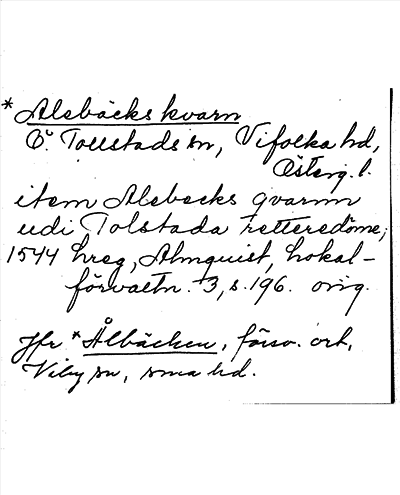 * Alebäcks kvarn
Ö. Tollstads sn, Vifolka hd,
Österg. l.
item Alebecks qvarnn
udi Tolstada retteredöme,
1544 hreg, Almquist, Lokal-
förvaltn. 3, s. 196. orig.
Jfr * Ålbäcken, försv. ort,
Viby sn, sma hd.